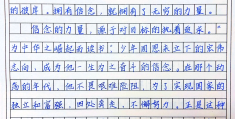 的彼岸。拥有信念，就拥有了无穷的力量。
信念的力量，源于对目标的执着追求。“
为中华之崛起而读书”，少年周恩来立下的宏伟
志向，成为他一生为之奋斗的信念。在那个动
荡的年代，他不畏艰难险阻，为了实现国家的
独立和富强，四处奔走，不懈努力。正是这种